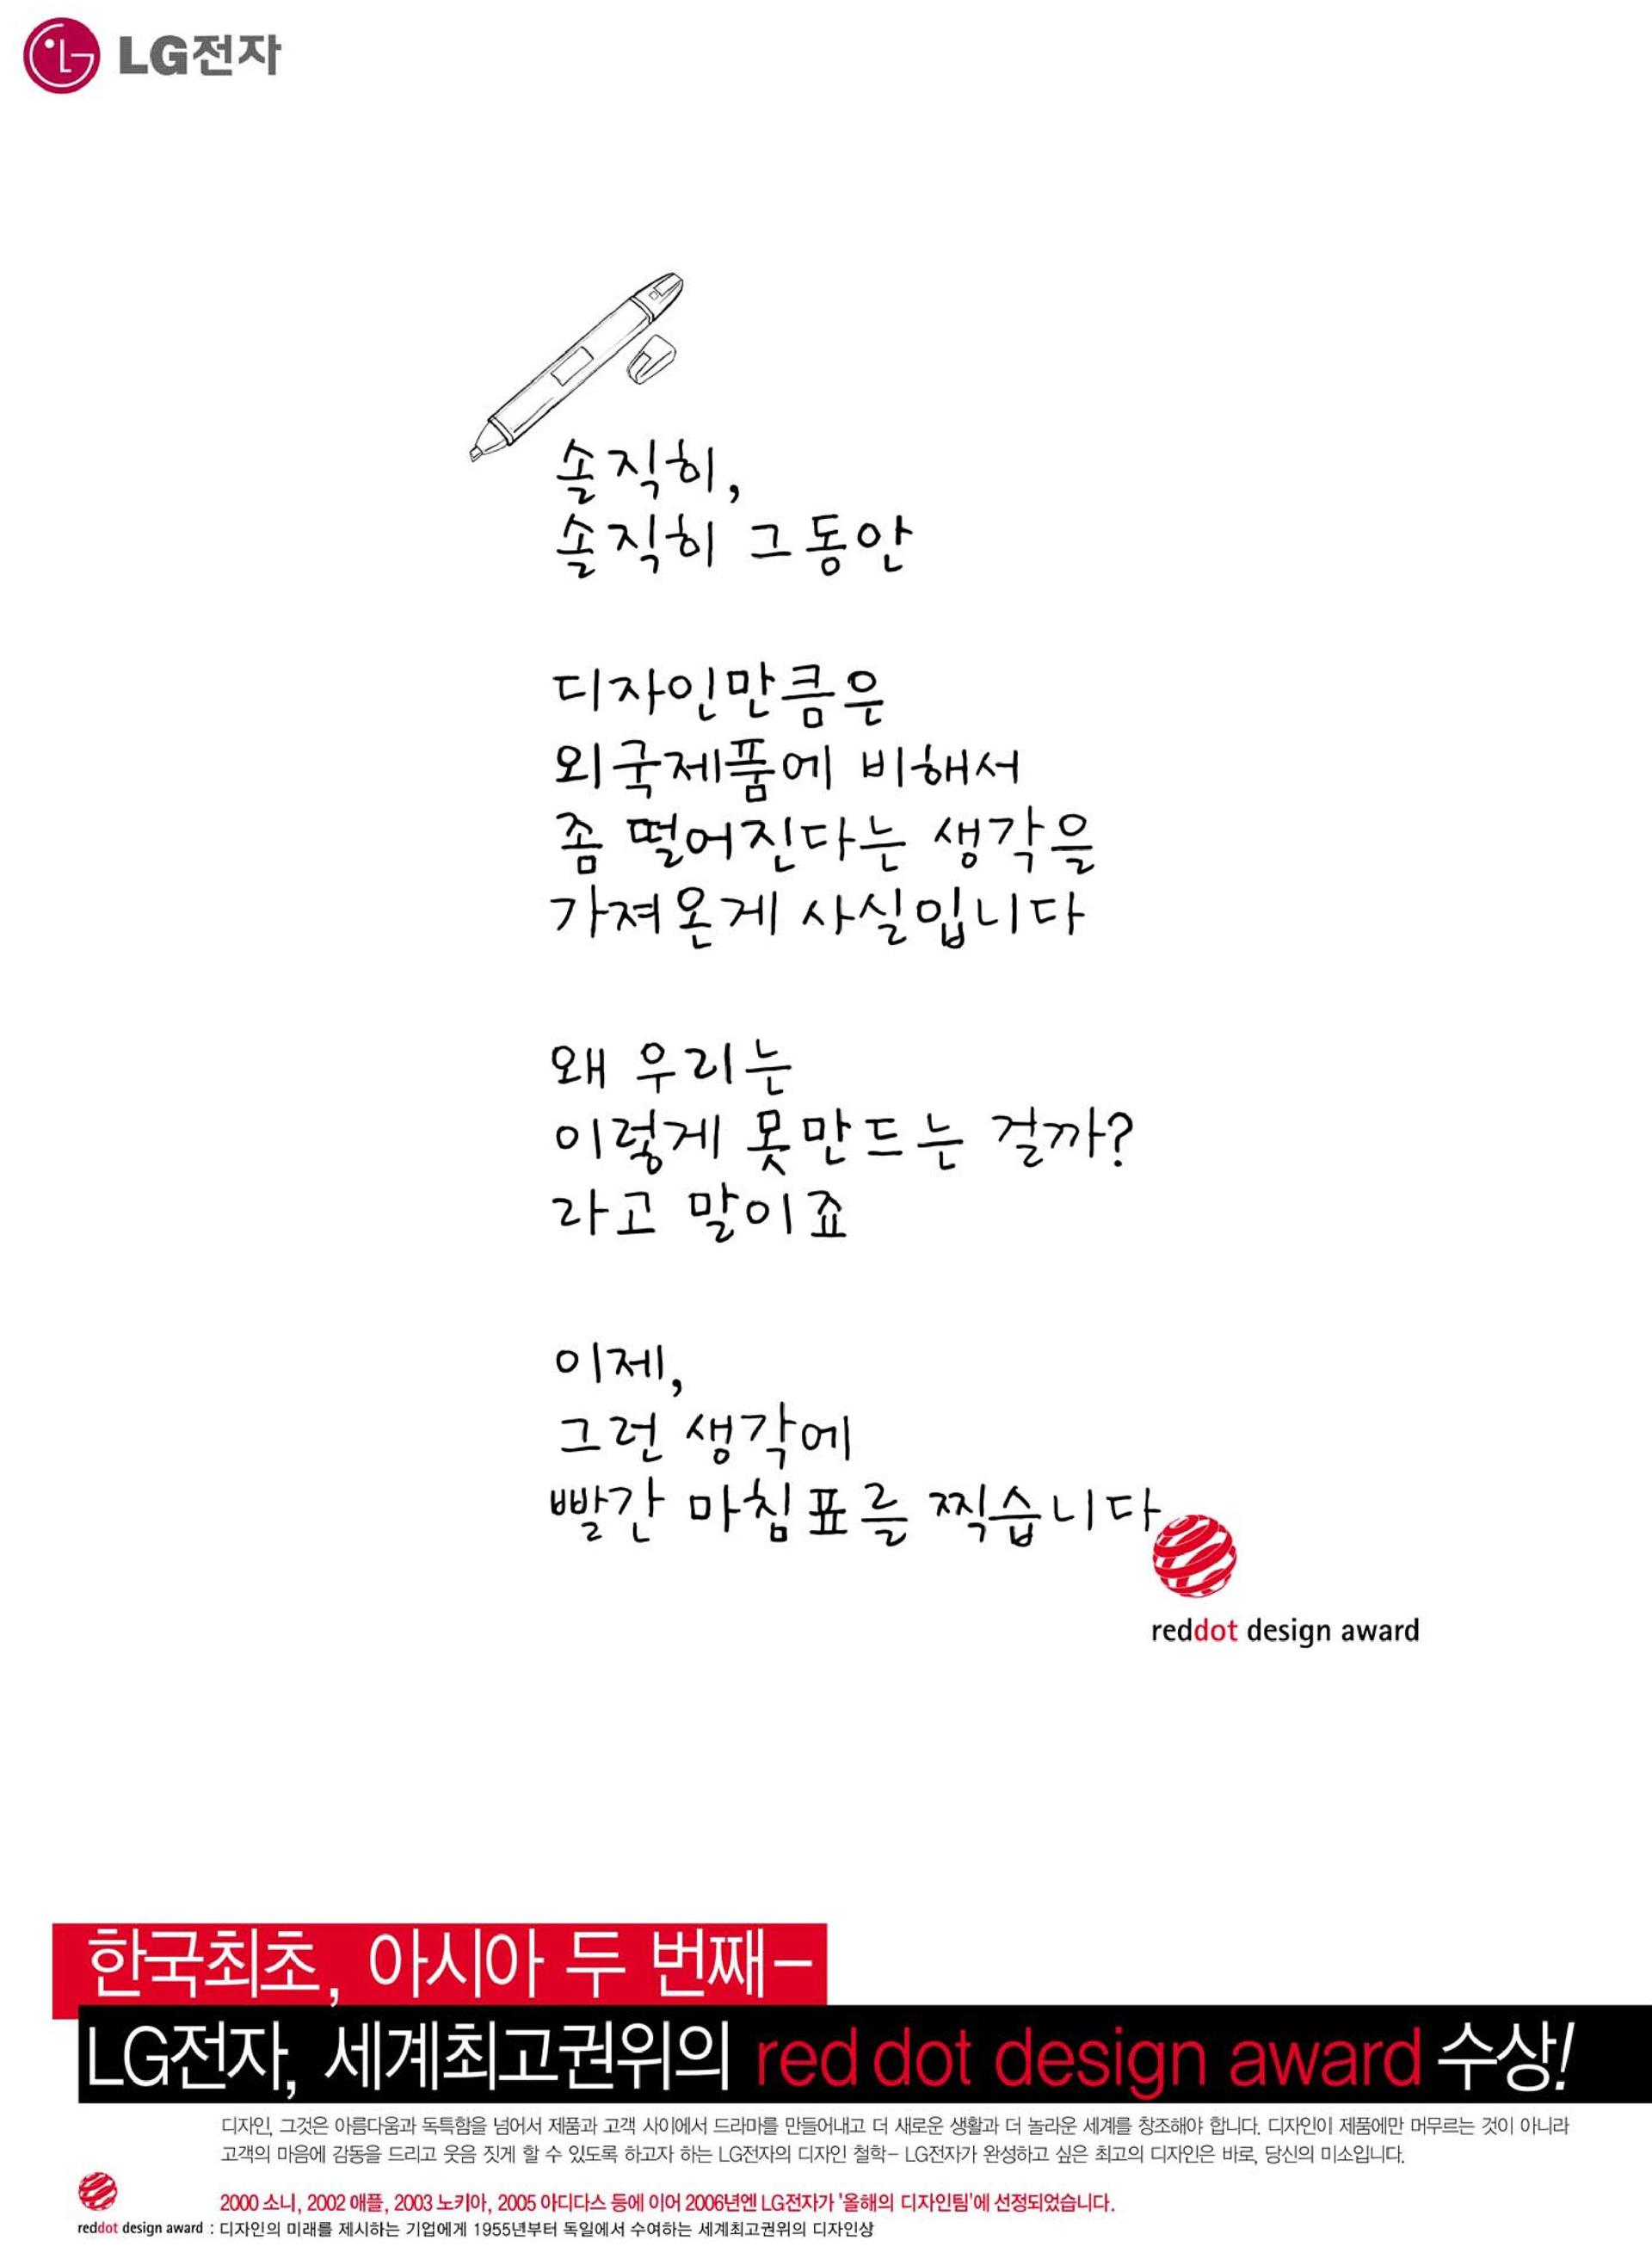 LG전자
솔직히,
솔직히 그동안
디자인만큼은
외국제품에 비해서
좀 떨어진다는 생각을
가져온게 사실입니다
왜 우리는
이렇게 못만드는 걸까?
라고 말이죠
이제,
그런 생각에
빨간 마침표를 찍습니다
reddot design award
한국최초, 아시아 두 번째-
LG전자, 세계최고권위의 red dot design award 수상!
디자인, 그것은 아름다움과 독특함을 넘어서 제품과 고객 사이에서 드라마를 만들어내고 더 새로운 생활과 더 놀라운 세계를 창조해야 합니다. 디자인이 제품에만 머무르는 것이 아니라
고객의 마음에 감동을 드리고 웃음 짓게 할 수 있도록 하고자 하는 LG전자의 디자인 철학- LG전자가 완성하고 싶은 최고의 디자인은 바로, 당신의 미소입니다.
2000 소니, 2002 애플, 2003 노키아, 2005 아디다스 등에 이어 2006년엔 LG전자가 '올해의 디자인팀'에 선정되었습니다.
reddot design award : 디자인의 미래를 제시하는 기업에게 1955년부터 독일에서 수여하는 세계최고권위의 디자인상